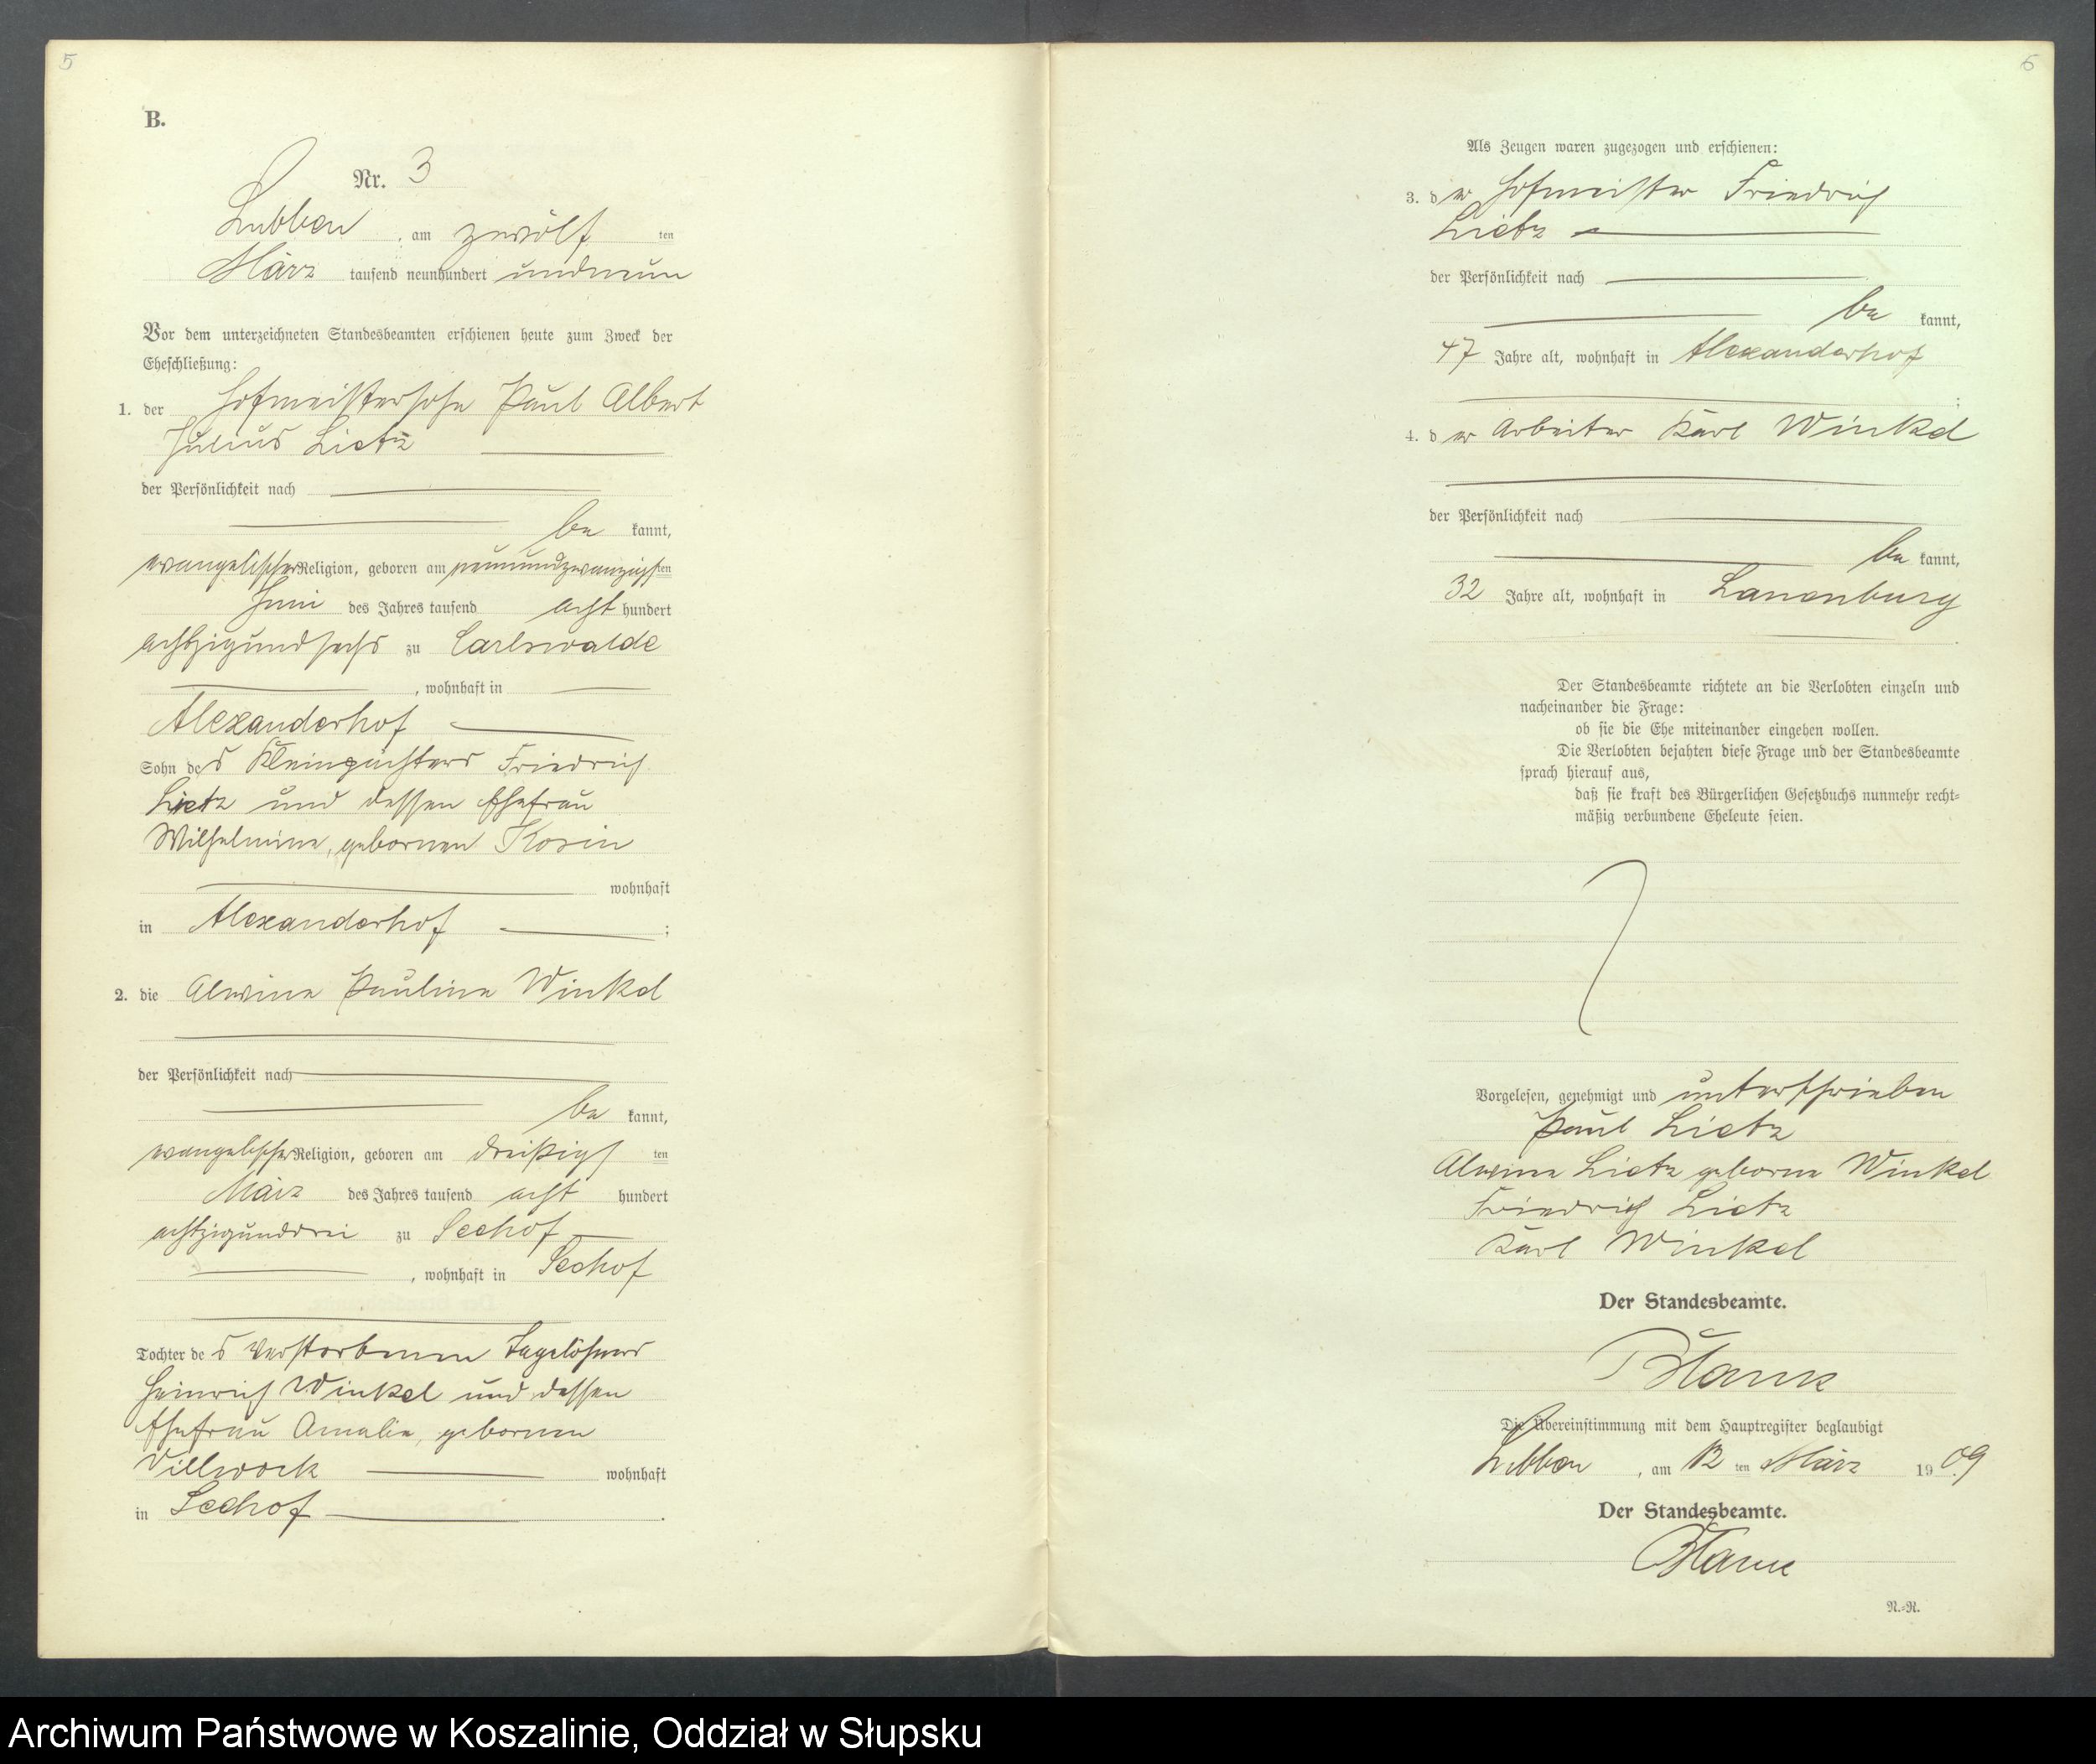 5
B.
Nr. 3
Lubben, am zwölften
März tausend neunhundert undneun
Vor dem unterzeichneten Standesbeamten erschienen heute zum Zweck der
Eheschließung:
1. der Hofmeistersohn Paul Albert
Julius Lietz
der Persönlichkeit nach
be kannt,
evangelischer Religion, geboren am neunundzwanzigsten
Juni des Jahres tausend acht hundert
achtzigundsechs zu Carlswalde
, wohnhaft in
Alexanderhof
Sohn des Kleinpächters Friedrich
Lietz und dessen Ehefrau
Wilhelmine, gebornen Kosin
wohnhaft
in Alexanderhof ;
2. die Alwine Pauline Winkel
der Persönlichkeit nach
be kannt,
evangelischer Religion, geboren am dreißigsten
März des Jahres tausend acht hundert
achtzigunddrei zu Seehof
, wohnhaft in Seehof
Tochter des verstorbenen Tagelöhners
Heinrich Winkel und dessen
Ehefrau Amalie, gebornen
Villwock wohnhaft
in Seehof .
6
Als Zeugen waren zugezogen und erschienen:
3. der Hofmeister Friedrich
Lietz
der Persönlichkeit nach
be kannt,
47 Jahre alt, wohnhaft in Alexanderhof
;
4. der Arbeiter Karl Winkel
der Persönlichkeit nach
be kannt,
32 Jahre alt, wohnhaft in Lauenburg
.
Der Standesbeamte richtete an die Verlobten einzeln und
nacheinander die Frage:
ob sie die Ehe miteinander eingehen wollen.
Die Verlobten bejahten diese Frage und der Standesbeamte
sprach hierauf aus,
daß sie kraft des Bürgerlichen Gesetzbuchs nunmehr recht=
mäßig verbundene Eheleute seien.
Vorgelesen, genehmigt und unterschrieben
Paul Lietz
Alwine Lietz geborne Winkel
Friedrich Lietz
Karl Winkel
Der Standesbeamte.
Die Übereinstimmung mit dem Hauptregister beglaubigt
Lubben, am 12ten März 1909
Der Standesbeamte.
N.=R.
Archiwum Państwowe w Koszalinie, Oddział w Słupsku